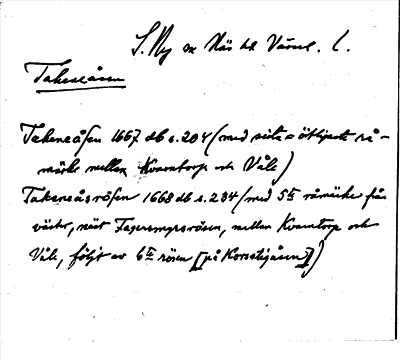 S. Ny sn Näs hd Värml. l.
Takeneåsen
Takeneåsen 1667 db s. 204 (med sista = ötligaste rå-
märke mellan Kvarntorp och Våle)
Takeneåsrösen 1668 db s. 234 (med 5te råmärke från
väster, näst Fagermyrsrösen, mellan Kvarntorp och
Våle, följt av 6te rösen [på Korsstigåsen])